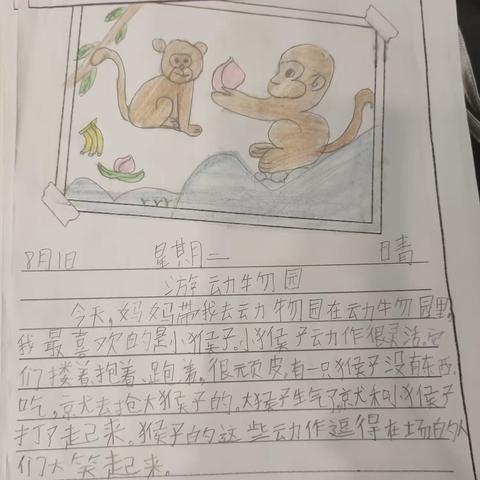 8月1日 星期二 日青
游动物园
今天,妈妈带我去动物园在动物园里,
我最喜欢的是小猴子。小猴子动作很灵活,它
们搂着,抱着、跑着,很顽皮,有一只猴子没有东西
吃,就去抢大猴子的,大猴子生气了就和小猴子
打了起来。猴子的这些动作逗得在场的人
们大笑起来。